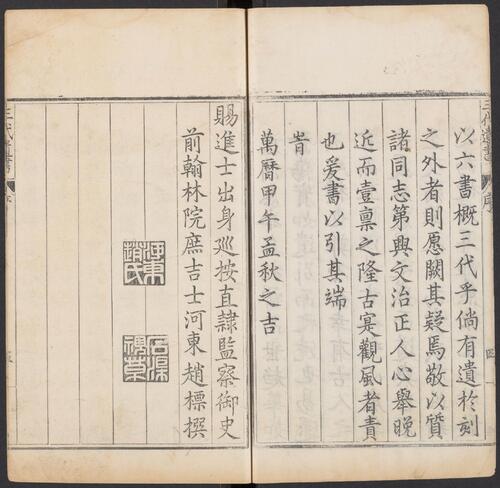 三代遺書
序
四
以六書概三代乎倘有遺於刻
之外者則愿闕其疑焉敬以質
諸同志第興文治正人心舉晚
近而壹禀之隆古寔觀風者責
也爰書以引其端
旹
萬曆甲午孟秋之吉
賜進士出身巡按直隸監察御史
前翰林院庶吉士河東趙標撰
河東趙氏
三代遺書
序
五